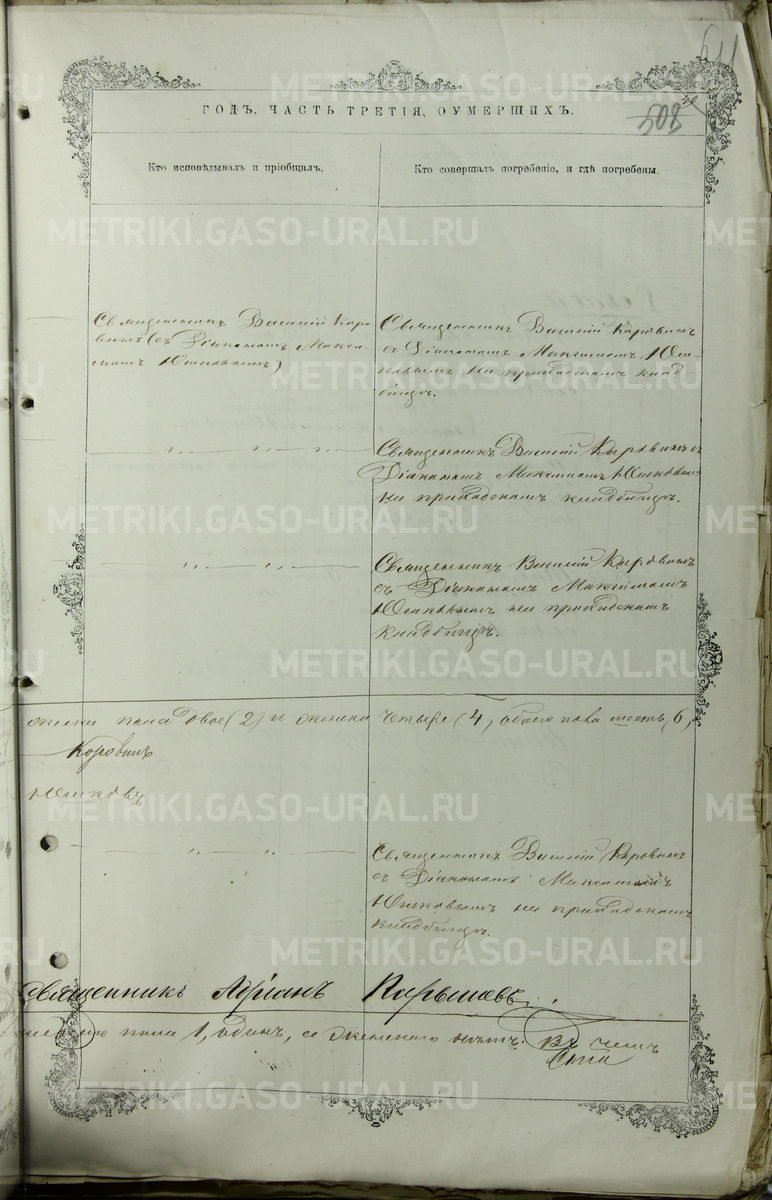 611
508
ГОДЪ, ЧАСТЬ ТРЕТІЯ, О УМЕРШИХЪ.
Кто исповѣдывалъ и пріобщалъ.
Кто совершалъ погребеніе, и гдѣ погребены.
Священникъ Василій Коро-
винъ (съ Діакономъ Макси-
момъ Юшковымъ)
Священникъ Василій Коровинъ
съ Діакономъ Максимомъ Юш-
ковымъ на приходскомъ клад-
бищѣ.
Священникъ Василій Коровинъ съ
Діакономъ Максимомъ Юшковымъ
на приходскомъ кладбищѣ.
Священникъ Василій Коровинъ
съ Діакономъ Максимомъ
Юшковымъ на приходскомъ
кладбищѣ.
пола двое (2) и женска четыре (4, обоего пола шесть (6,
Коровинъ
Юшковъ
Священникъ Василій Коровинъ
съ Діакономъ Максимомъ
Юшковымъ на приходскомъ
кладбищѣ.
Священникъ Адріанъ
пола 1, одинъ, а женскаго нѣтъ. Въ чемъ
METRIKI.GASO-URAL.RU